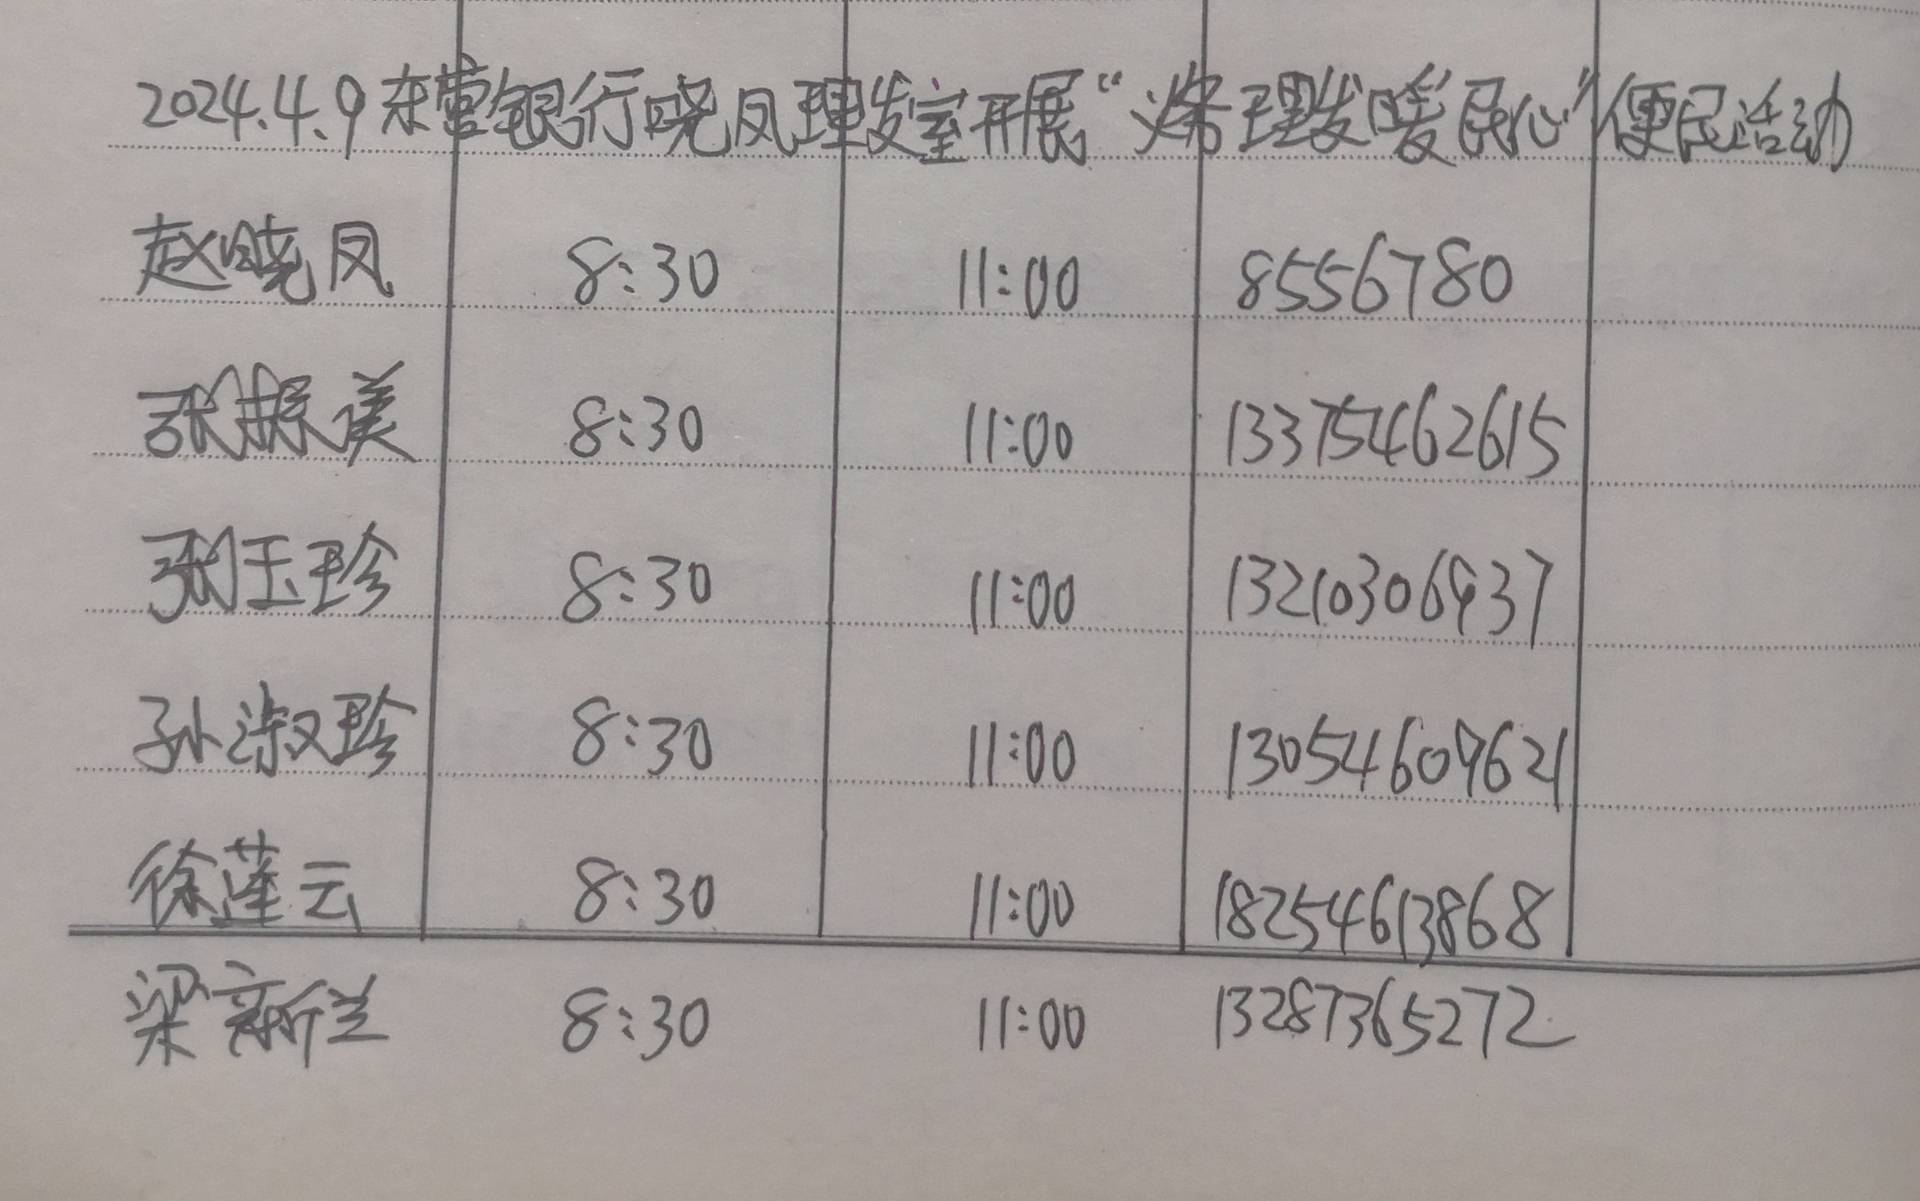 2024.4.9东营银行晓凤理发室开展“义务理发暖民心”便民活动
赵晓凤 8:30 11:00 8556780
张振美 8:30 11:00 13375462615
张玉珍 8:30 11:00 13210306937
孙淑珍 8:30 11:00 13054609621
徐莲云 8:30 11:00 18254613868
梁新兰 8:30 11:00 13287365272